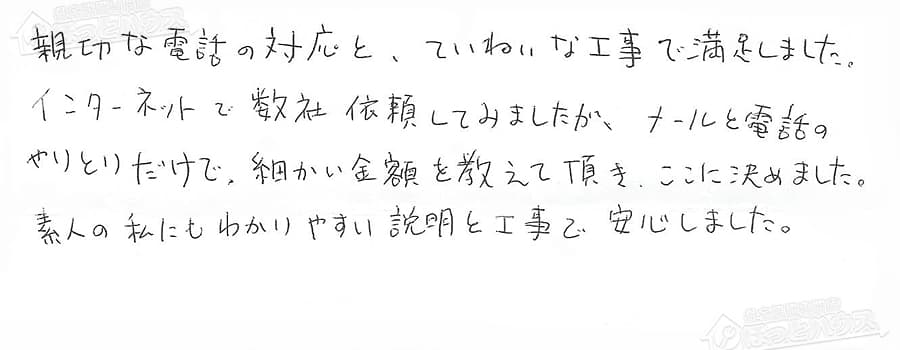 親切な電話の対応と、ていねいな工事で満足しました。
インターネットで数社依頼してみましたが、メールと電話の
やりとりだけで、細かい金額を教えて頂き、ここに決めました。
素人の私にもわかりやすい説明と工事で安心しました。